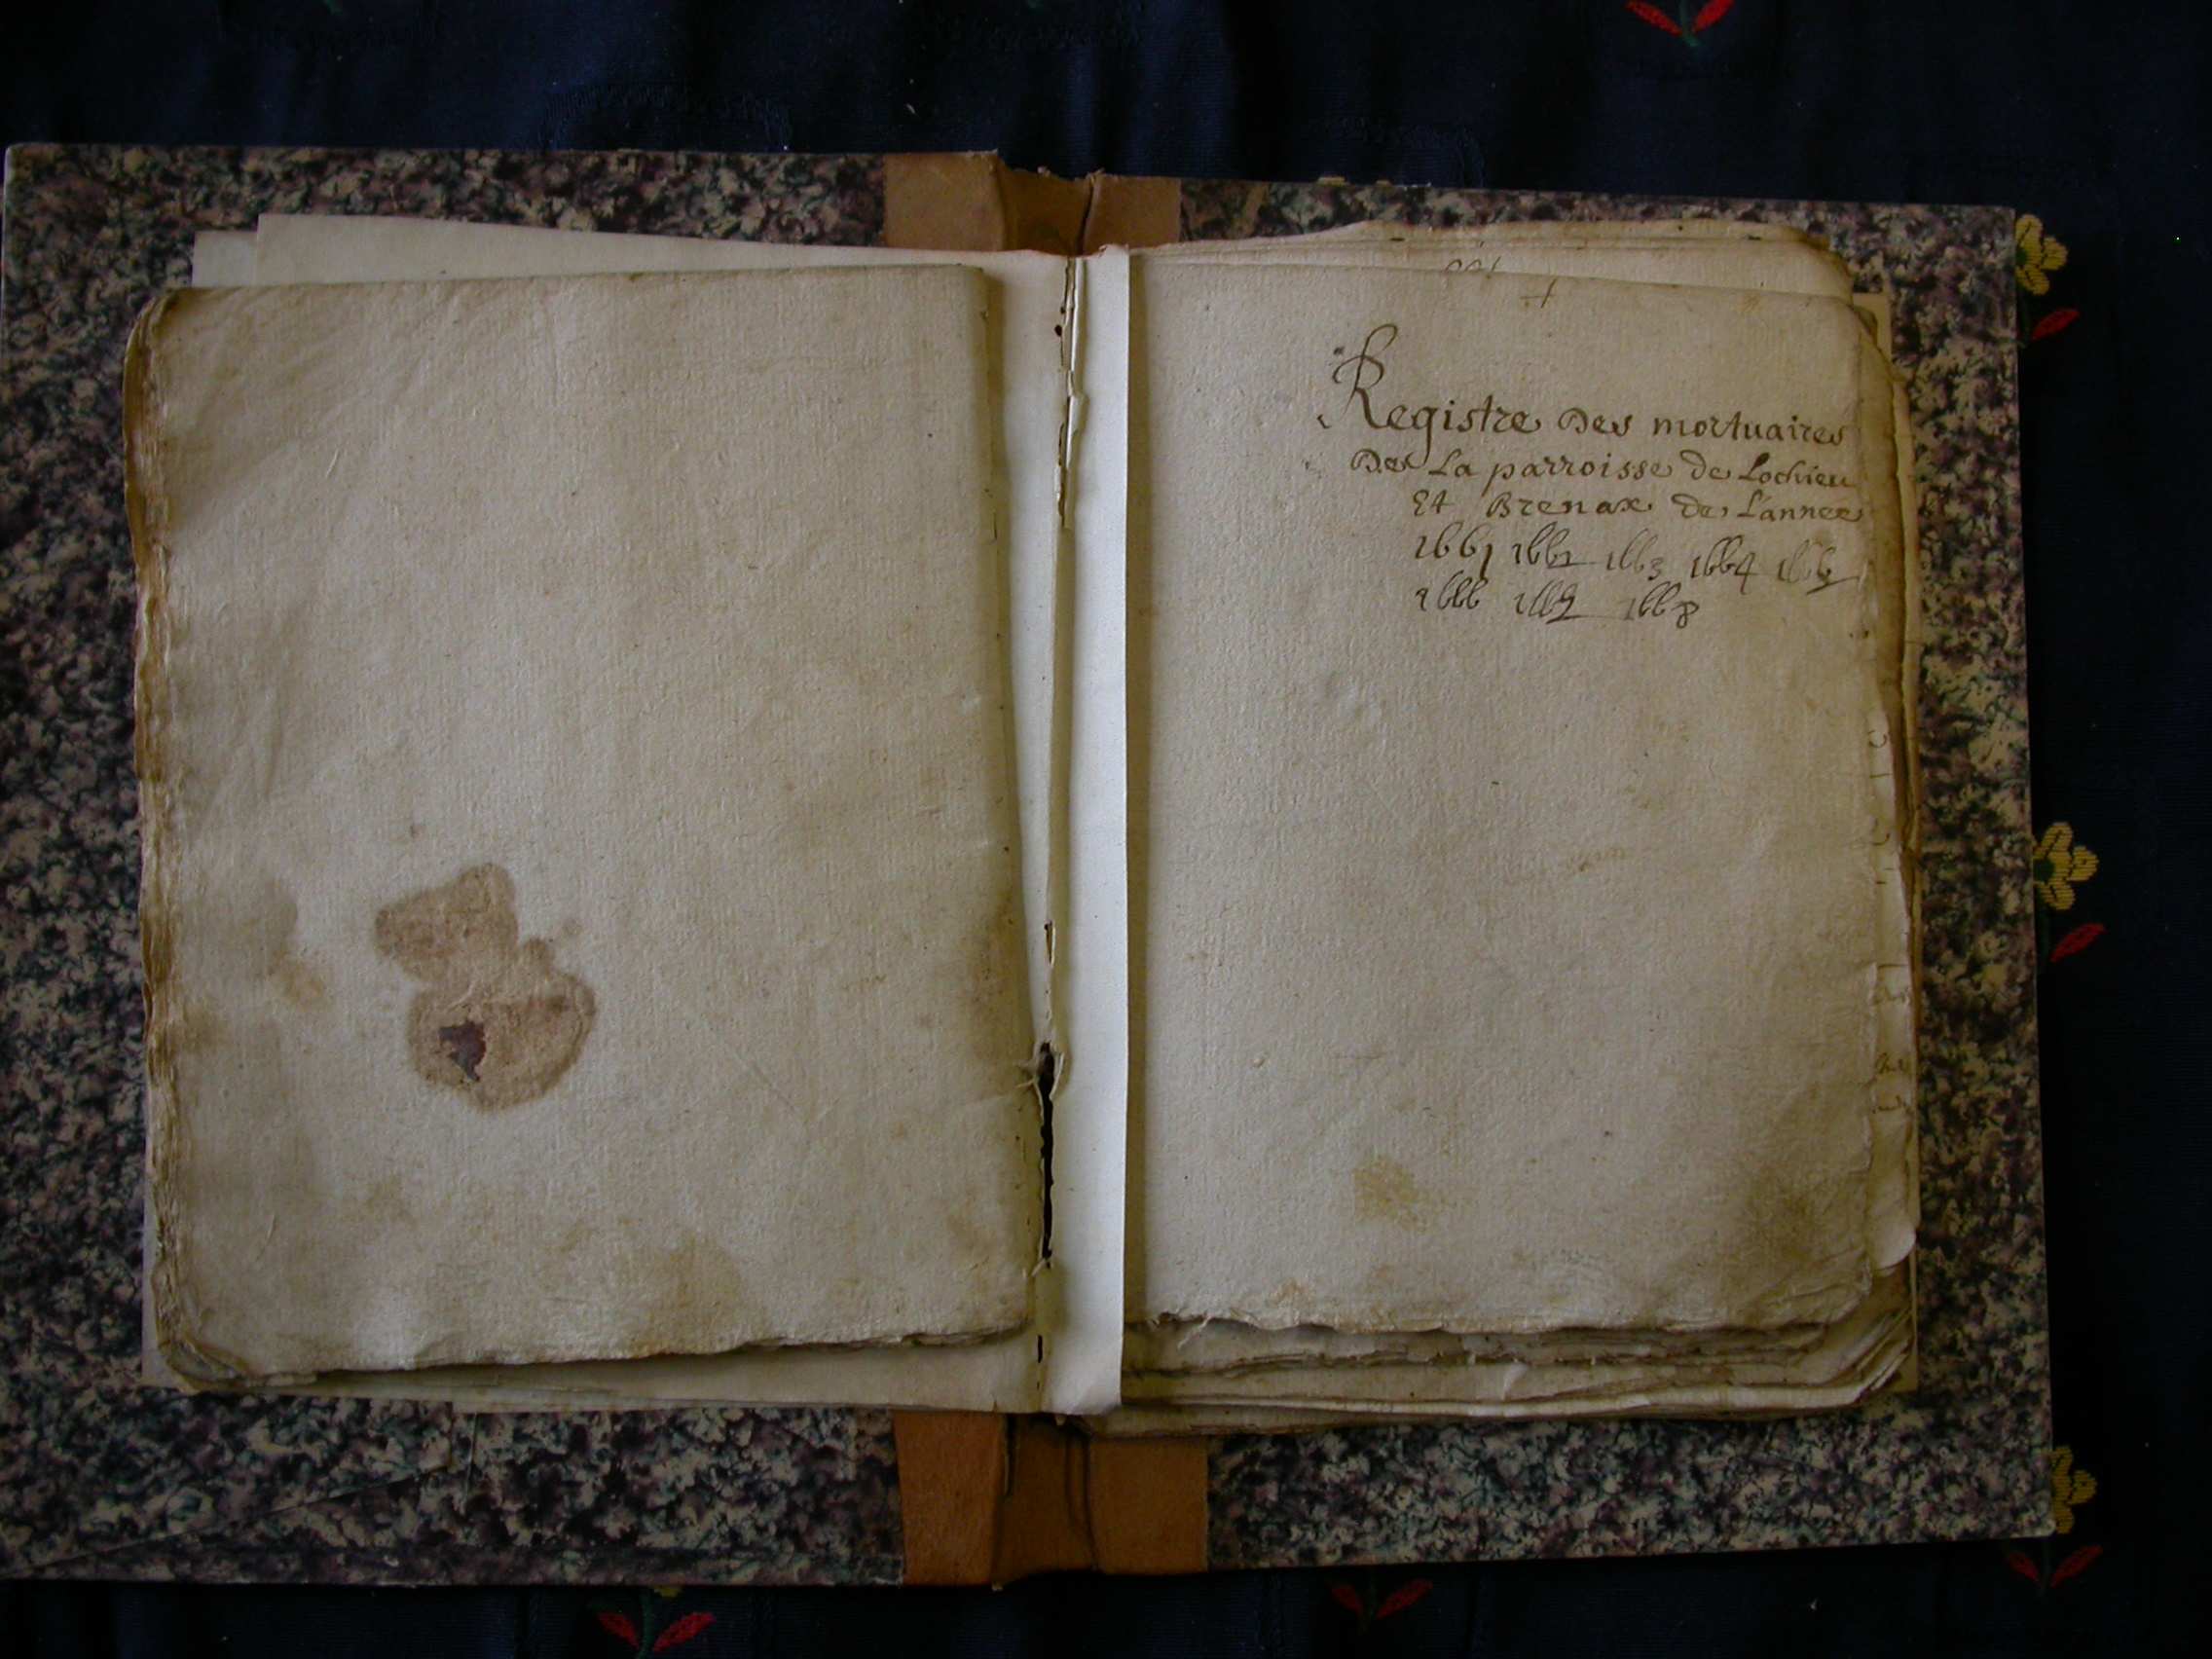 Registre des mortuaires
De La parroisse de Lochieu
Et Brenax de L'année
1661 1662 1663 1664 1665
1666 1667 1668